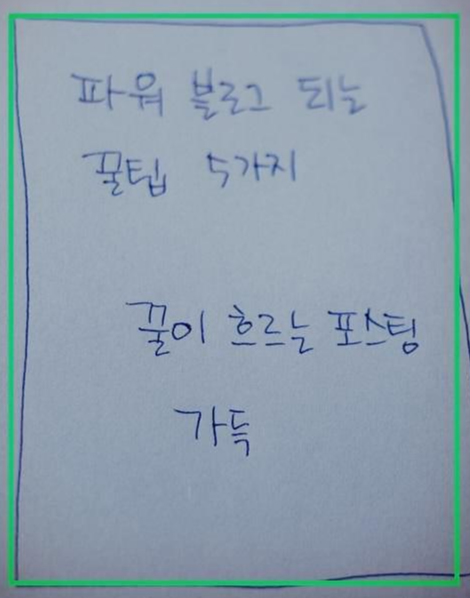 파워 블로그 되는
꿀팁 5가지
꿀이 흐르는 포스팅
가득